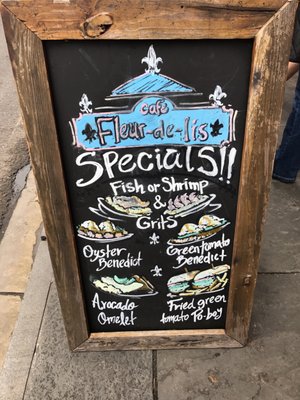 café
Fleur-de-lis
Specials!!
Fish or Shrimp
&
Grits
Oyster
Benedict
Green tomato
Benedict
Avocado
Omelet
Fried green
tomato Po-boy